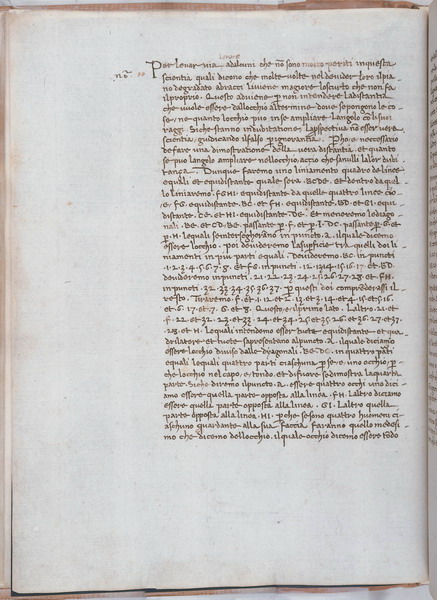 lerrore
Per lenar via adalcuni che nõ sono molto periti inquesta
nõ
scientia quali dicono che molte volte nel deuider loro ilpia
no degradato abracci li viene magiore loscurto che non fa
ilproprio. Questo adviene p̱ non intendere Ladistantia
che vuole essere dallocchio altermine doue sepongono le co
se, ne quanto locchio puo inse ampliare Langolo co lisuoi
raggi. Siche stanno indubitatione Laprospectiua nõ esser vera
scientia, giudicando ilfalso p̱ ignorantia. Pho e necessario
defare una dimostratione della uera distantia, et quanto
se puo Langolo ampliare nellocchio, accio che sanulli Lalor dubi
tança. Dunque faremo uno liniamento quadro de linee
equali et equidistante quale sera. B.C.D.E. et dentro da quel
lo liniaremo. F.G.H.I. equidistante da quelle quattro linee cio
e. FG. equidistante. BC. et FH. equidistante. BD. et GI. equi
distante. CE. et HI. equidistante. DE. et menaremo lediago
nali. BE. et CD. BE. passante p̱. F. et p̱. I. DC. passante p̱. G. et
p̱. H. Lequali se intersegharano in puncto. A. ilquale dicemo
essere locchio. poi deuideremo Lasup̱ficie tra quelli doi li
niamenti in piu parti equali. Deuideremo. BC. in puncti
.1.2.3.4.5.6.7.8. et FG. in puncti. 12.13.14.15.16.17. et BD.
deuideremo in puncti. 21.22.23.24.25.26.27.28. et FH.
in puncti. 32.33.34.35.36.37. p̱ questi doi comprederassi il
resto. Tiraremo. F. et. 1. 12 et 2. 13. et 3. 14. et 4. 15. et 5. 16.
et 6. 17. et 7. G. et 8. Questo e ilprimo lato. Laltro. 21. et
F. 22. et 32. 23. et 33. 24. et 34. 25. et 35. 26. et 36. 27. et 37.
.28. et H. Lequali intendemo esser tucte equidistante et qua
drilatere et tucte sapresentano alpuncto. A. ilquale diciamo
essere locchio diuiso dalle dyagonali. BE. DC. in quattro parti
equali Lequali quattro parti ciaschuna p̱ se e, uno occhio, p̱
che locchio nel capo, e, tondo, et difiore sedimostra laquarta
parte. Siche diremo ilpuncto. A. essere quattro occhi uno dici
amo essere quella parte opposta alla linea. FH. Laltro diciamo
essere quella parte opposta alla linea. GI. Laltro quella
parte opposta alla linea. HI. p̱che se sono quattro huomeni ci
aschuno guardante alla sua faccia faranno quello medesi
mo che dicemo dellocchio, ilquale occhio dicemo essere todo